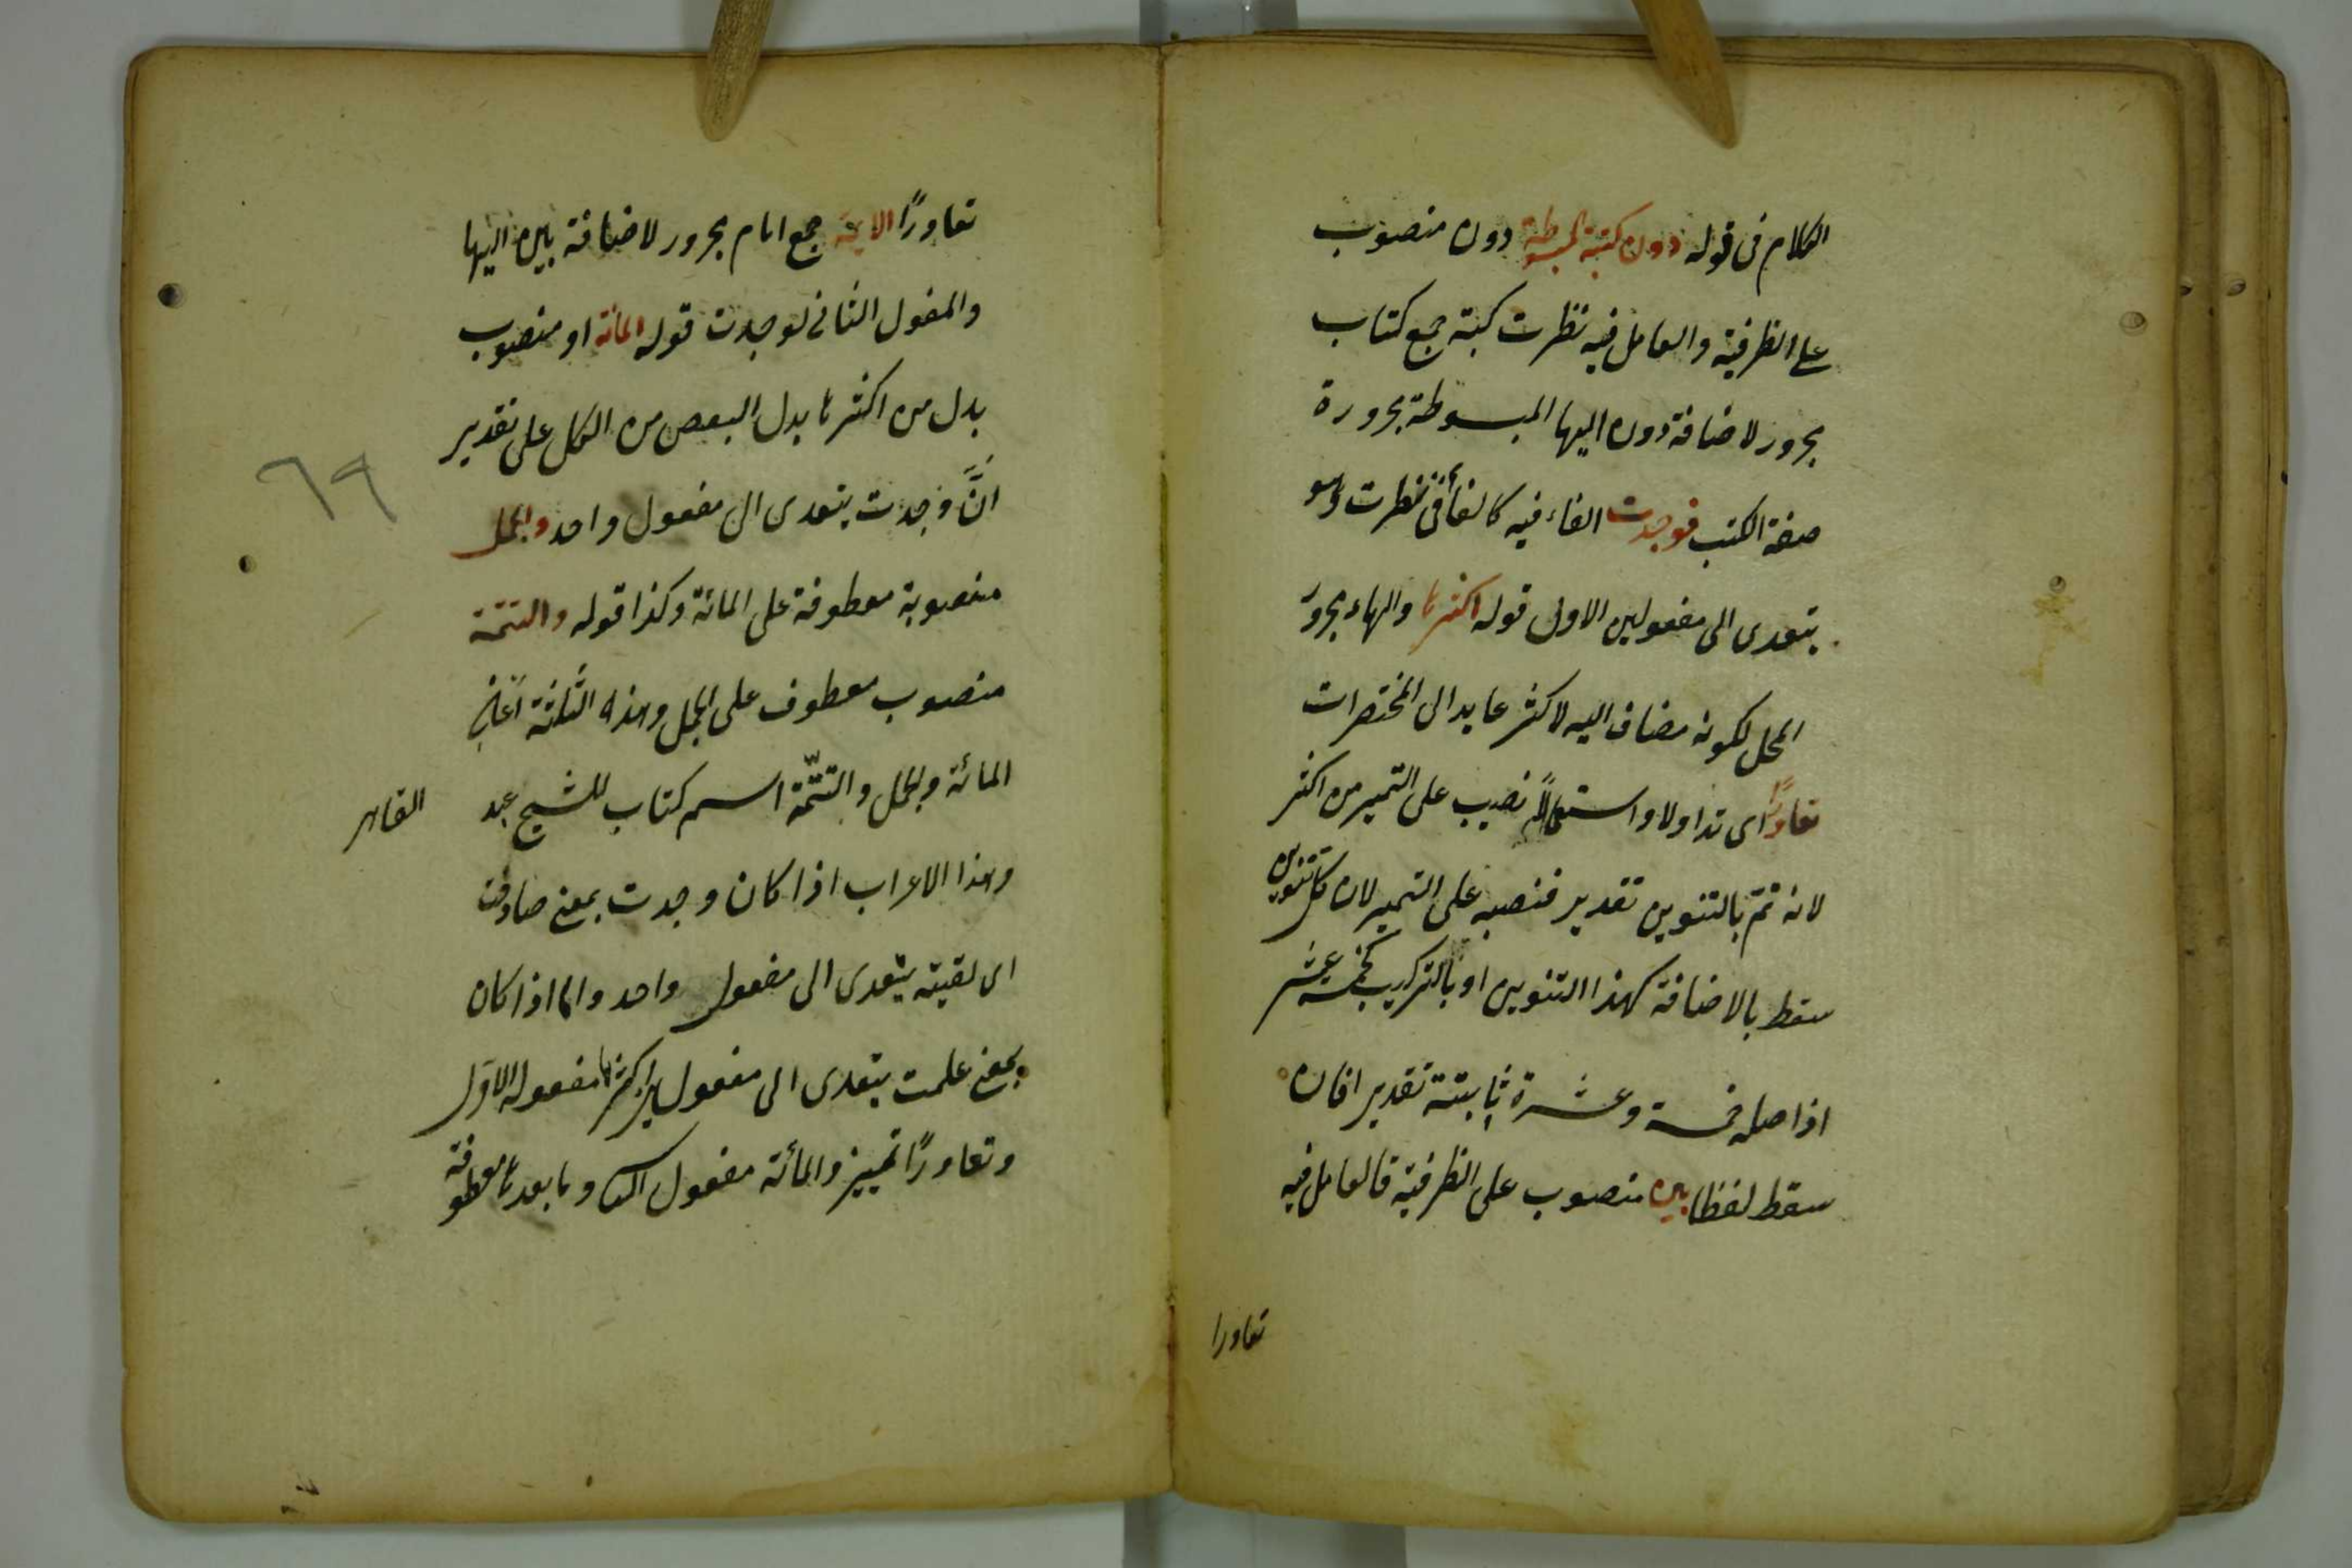 الكلام فى قوله دون كتبة المبسوطة دون منصوب
على الظرفية والعامل فيه نظرت كتبة جمع كتاب
مجرور لاضافة دون اليها المبسوطة مجرورة
صفة الكتب فوجدت الفاء فيه كالفاء فى نظرت وهو
يتعدى الى مفعولين الاول قوله اكثرها والهاء مجرور
المحل لكونه مضاف اليه لاكثر عايد الى المختصرات
تعاورًا اى تداولا واستعمالًا نصب على التميز من اكثر
لانه تمّ بالتنوين تقدير فنصبه على التميز لان كل تنوين
سقط بالاضافة كهذا التنوين او بالتركيب كخمسة عشر
اذ اصله خمسة وعشرة ثابتة تقديرا فان
سقط لفظا بين منصوب على الظرفية فالعامل فيه
تعاورا
تعاورًا الايمة جمع امام مجرور لاضافة بين اليها
والمفعول الثانى لوجدت قوله المائة او منصوب
بدل من اكثرها بدل البعض من الكل على تقدير
انَّ وجدت يتعدى الى مفعول واحد والجمل
منصوبة معطوفة على المائة وكذا قوله والتتمة
منصوب معطوف على الجمل وهذه الثلثة اعنى
المائة والجمل والتتمّة اسم كتاب للشيخ عبد القاهر
وهذا الاعراب اذا كان وجدت بمعنى صادفت
اى لقيته يتعدى الى مفعول واحد واما اذا كان
بمعنى علمت يتعدى الى مفعولين اكثرها مفعوله الاول
وتعاورًا تمييز والمائة مفعول الثانى وما بعدها معطوفة
٦٩